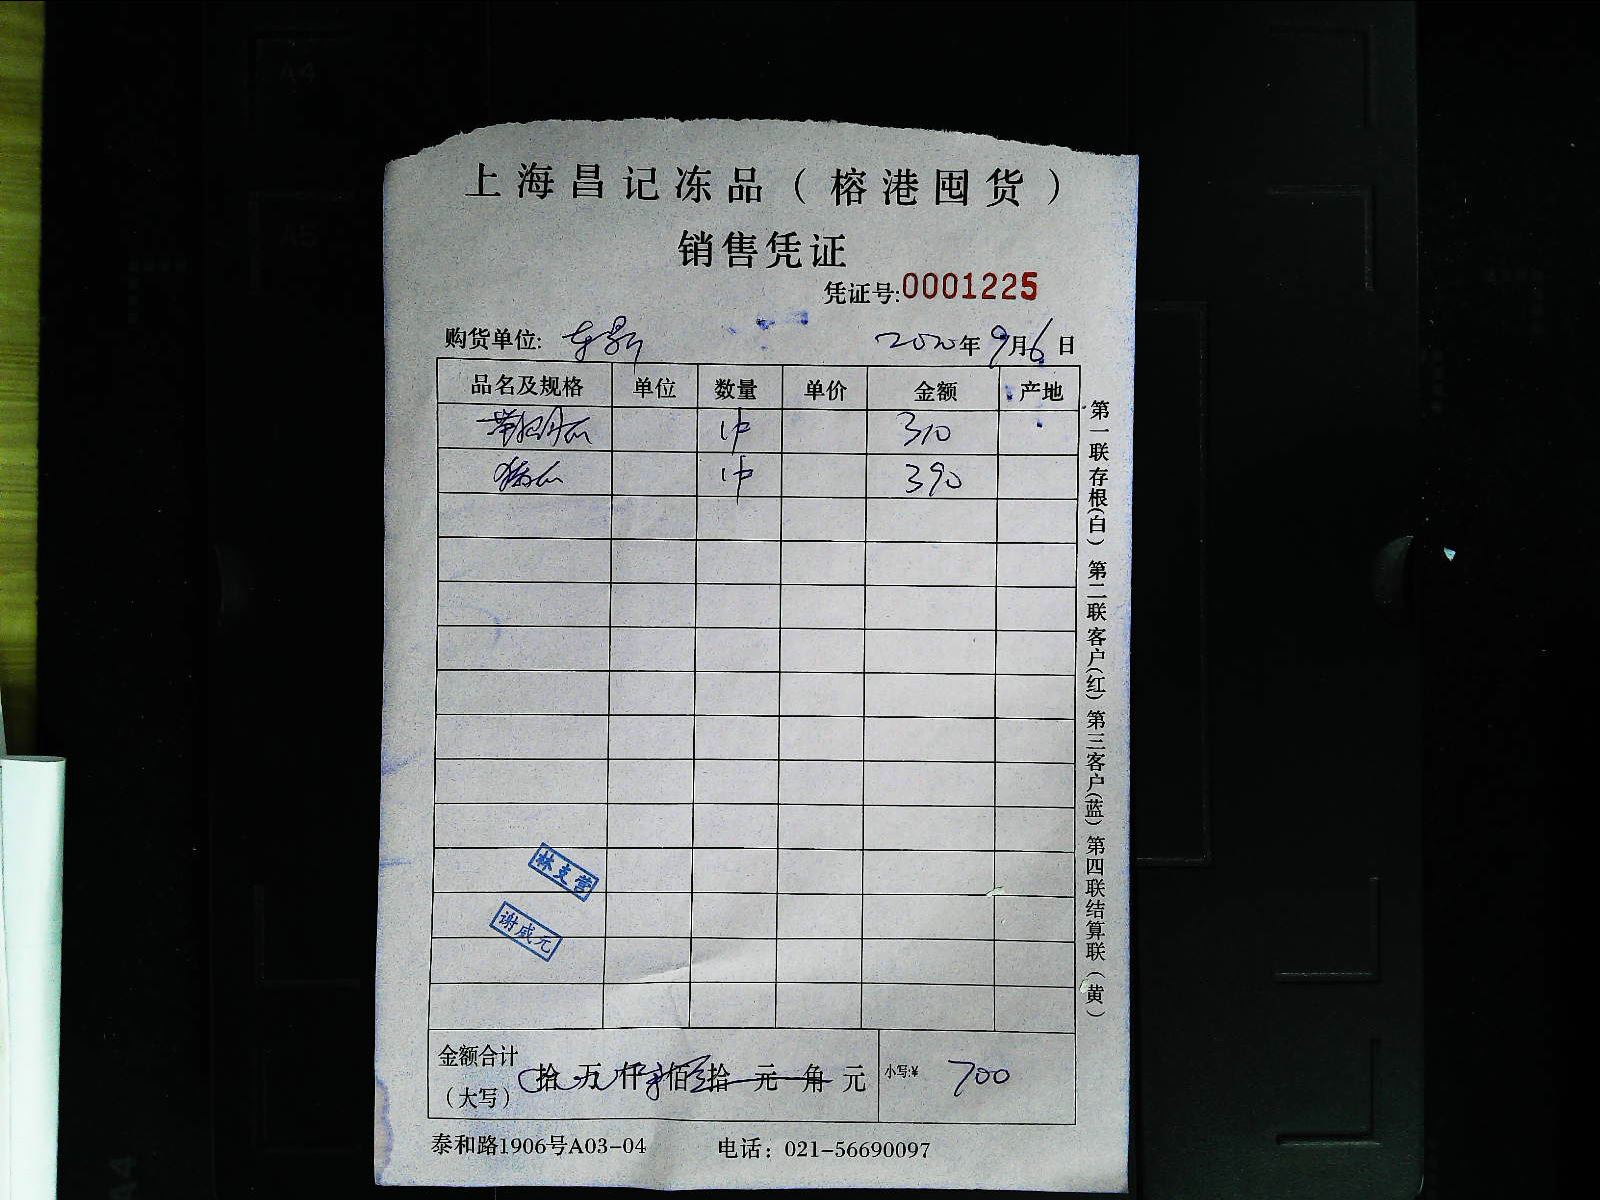 上海昌记冻品（榕港囤货）
销售凭证
凭证号:0001225
购货单位: 2020年9月6日
品名及规格 单位 数量 单价 金额 产地
1件 310
1件 390
金额合计
（大写） 拾 万 仟 柒 佰 零 拾 元 角 元 小写:¥ 700
泰和路1906号A03-04 电话：021-56690097
第一联存根(白) 第二联客户(红) 第三客户(蓝) 第四联结算联（黄）
林支营
谢威元
A4
A5
A4